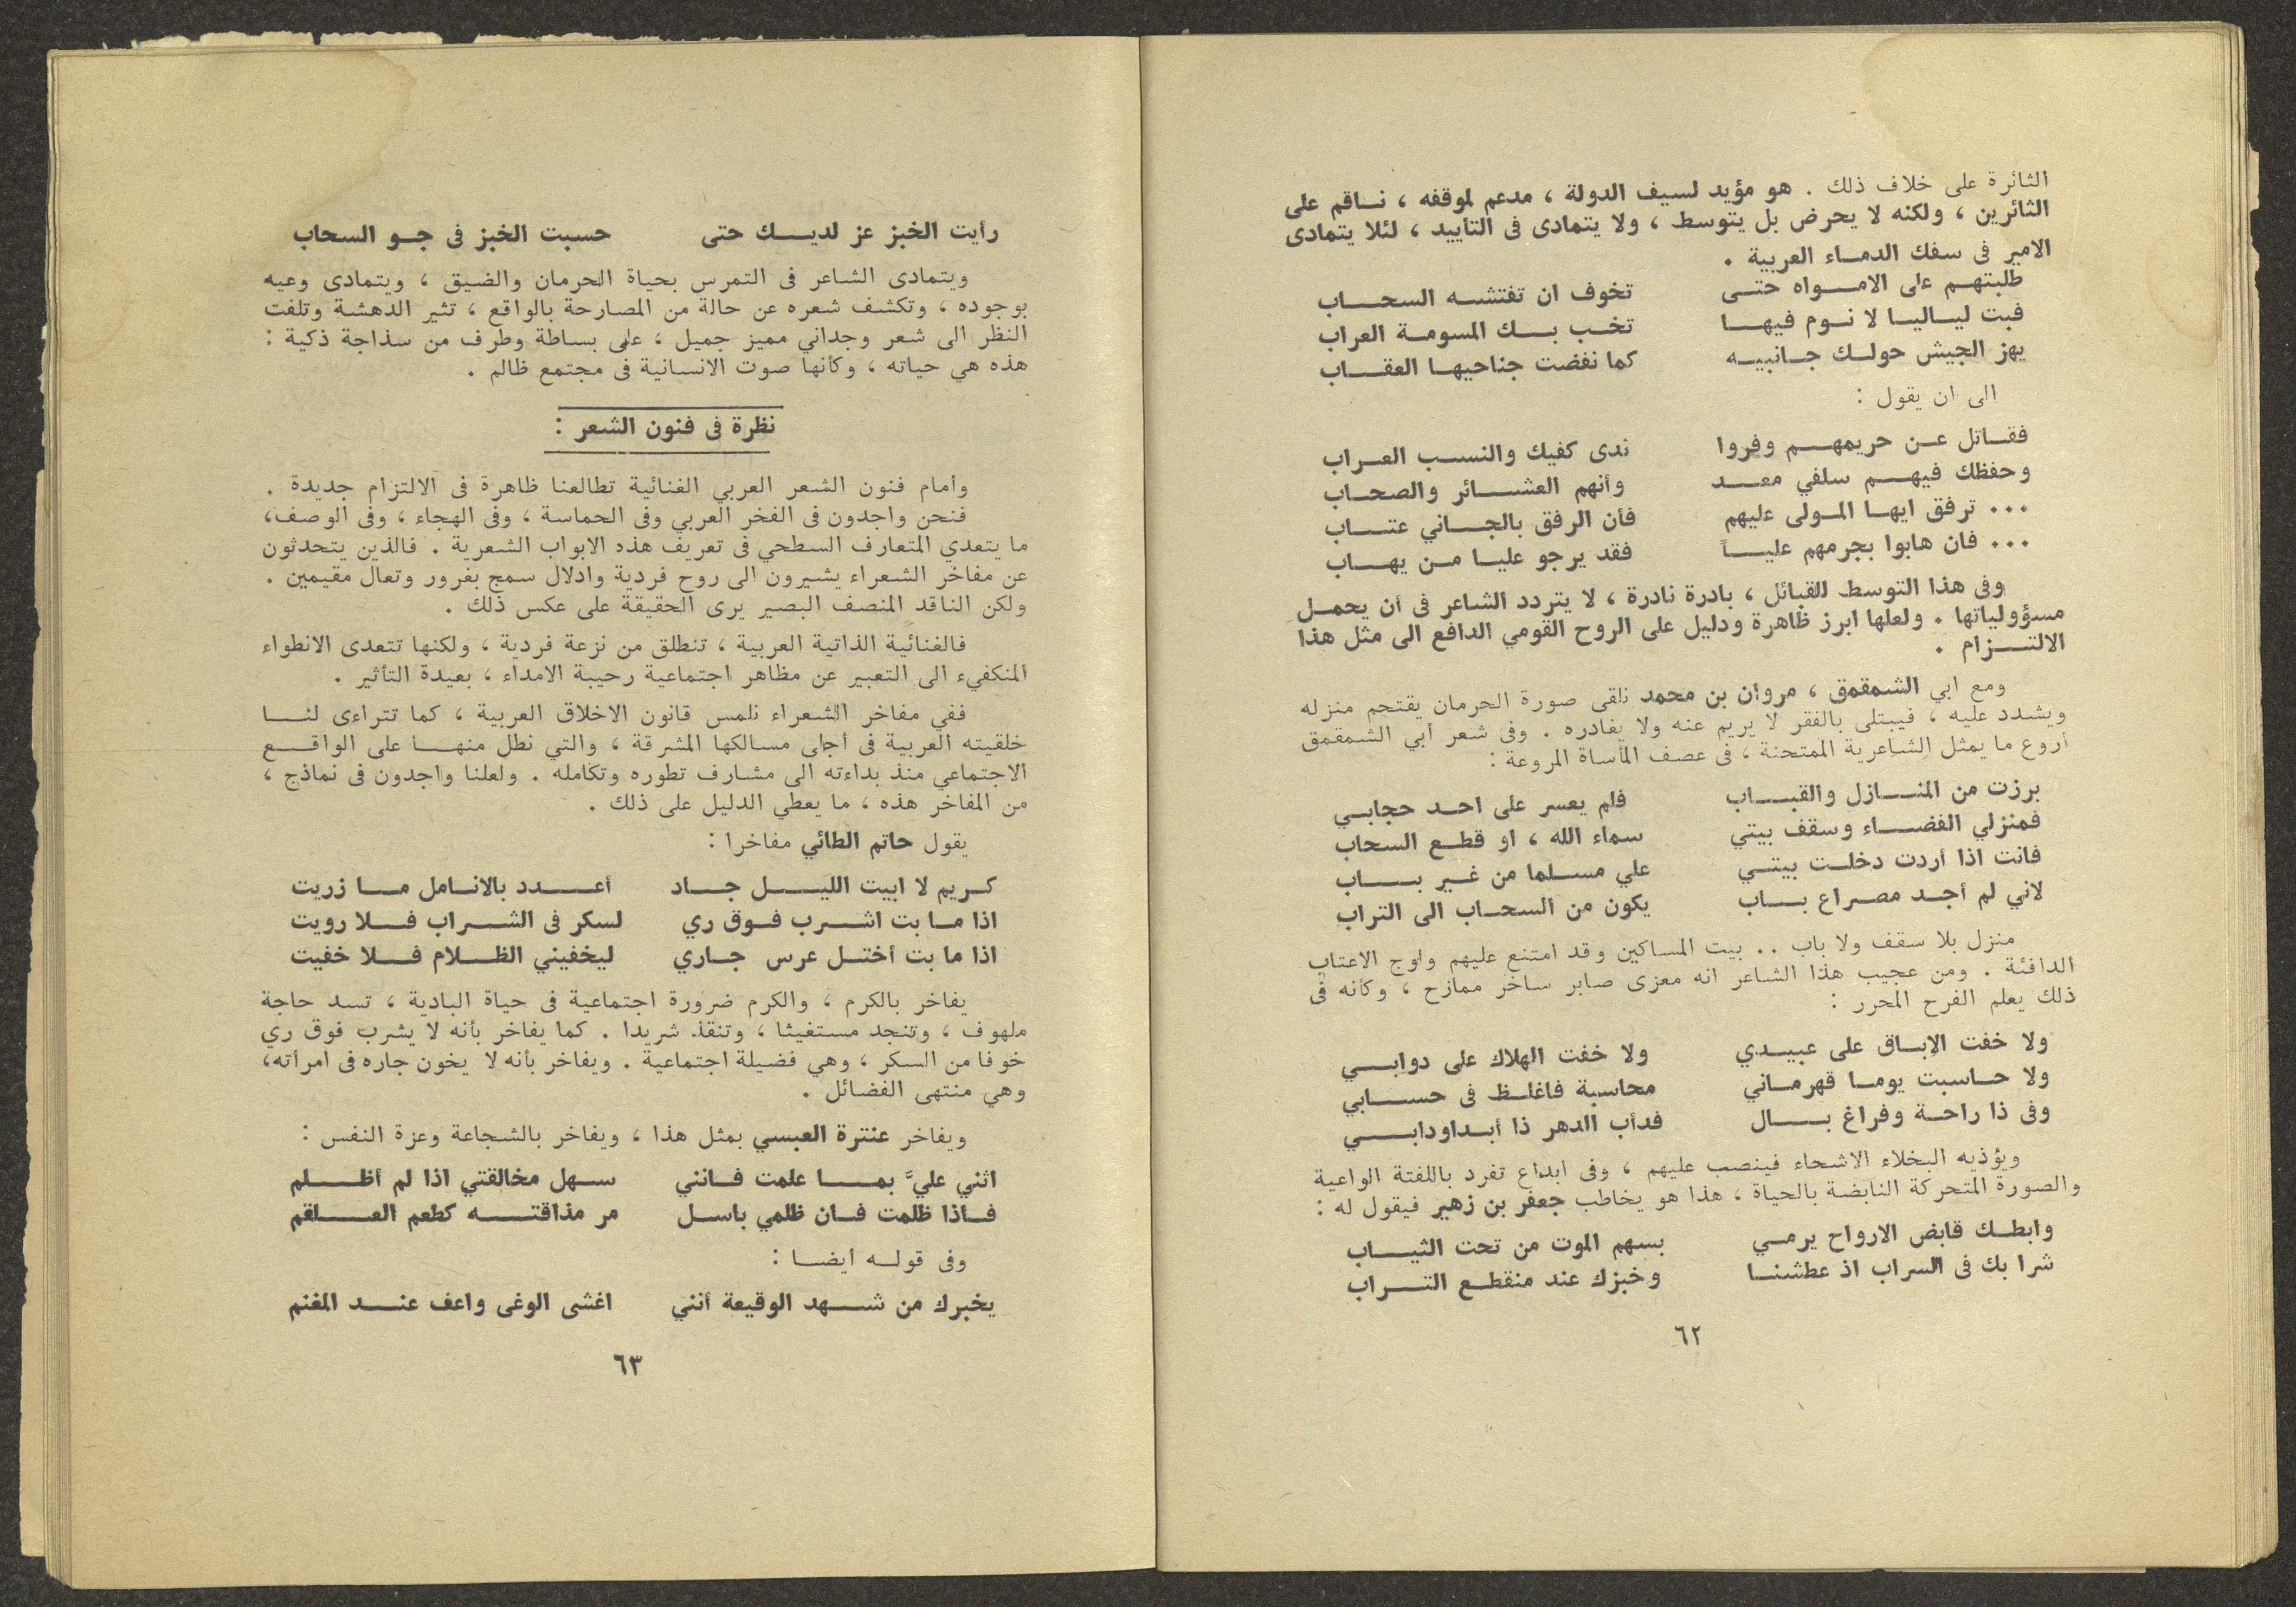 الثائرة على خلاف ذلك . هو مؤيد لسيف الدولة ، مدعم لموقفه ، نـاقم على
الثائرين ، ولكنه لا يحرض بل يتوسط ، ولا يتمادى فى التأييد ، لئلا يتمادى
الامير فى سفك الدماء العربية .
طلبتهم على الامواه حتى تخوف ان تفتشه السحاب
فبت لياليا لا نوم فيها تخب بك المسومة العراب
يهز الجيش حولك جانبيه كما نفضت جناحيها العقاب
الى ان يقول :
فقاتل عن حريمهم وفروا ندى كفيك والنسب العراب
وحفظك فيهم سلفي معد وأنهم العشائر والصحاب
... ترفق ايها المولى عليهم فأن الرفق بالجاني عتاب
... فان هابوا بجرمهم علياً فقد يرجو عليا من يهاب
وفى هذا التوسط للقبائل ، بادرة نادرة ، لا يتردد الشاعر فى أن يحمل
مسؤولياتها . ولعلها ابرز ظاهرة ودليل على الروح القومي الدافع الى مثل هذا
الالتزام .
ومع ابي الشمقمق ، مروان بن محمد نلقى صورة الحرمان يقتحم منزله
ويشدد عليه ، فيبتلى بالفقر لا يريم عنه ولا يغادره . وفى شعر أبي الشمقمق
أروع ما يمثل الشاعرية الممتحنة ، فى عصف المأساة المروعة :
برزت من المنازل والقباب فلم يعسر على احد حجابي
فمنزلي الفضاء وسقف بيتي سماء الله ، او قطع السحاب
فانت اذا أردت دخلت بيتي علي مسلما من غير باب
لاني لم أجد مصراع باب يكون من السحاب الى التراب
منزل بلا سقف ولا باب .. بيت المساكين وقد امتنع عليهم ولوج الاعتاب
الدافئة . ومن عجيب هذا الشاعر انه معزى صابر ساخر ممازح ، وكأنه فى
ذلك يعلم الفرح المحرر :
ولا خفت الإباق على عبيدي ولا خفت الهلاك على دوابي
ولا حاسبت يوما قهرماني محاسبة فاغلظ فى حسابي
وفى ذا راحة وفراغ بال فدأب الدهر ذا أبداودابي
ويؤذيه البخلاء الاشحاء فينصب عليهم ، وفى ابداع تفرد باللفتة الواعية
والصورة المتحركة النابضة بالحياة ، هذا هو يخاطب جعفر بن زهير فيقول له :
وابطك قابض الارواح يرمي بسهم الموت من تحت الثياب
شرا بك فى السراب اذ عطشنا وخبزك عند منقطع التراب
٦٢
رأيت الخبز عز لديك حتى حسبت الخبز فى جو السحاب
ويتمادى الشاعر فى التمرس بحياة الحرمان والضيق ، ويتمادى وعيه
بوجوده ، وتكشف شعره عن حالة من المصارحة بالواقع ، تثير الدهشة وتلفت
النظر الى شعر وجداني مميز جميل ، على بساطة وطرف من سذاجة ذكية :
هذه هي حياته ، وكأنها صوت الانسانية فى مجتمع ظالم .
نظرة فى فنون الشعر :
وأمام فنون الشعر العربي الغنائية تطالعنا ظاهرة فى الالتزام جديدة .
فنحن واجدون فى الفخر العربي وفى الحماسة ، وفى الهجاء ، وفى الوصف،
ما يتعدي المتعارف السطحي فى تعريف هذه الابواب الشعرية . فالذين يتحدثون
عن مفاخر الشعراء يشيرون الى روح فردية وادلال سمج بغرور وتعال مقيمين .
ولكن الناقد المنصف البصير يرى الحقيقة على عكس ذلك .
فالغنائية الذاتية العربية ، تنطلق من نزعة فردية ، ولكنها تتعدى الانطواء
المنكفيء الى التعبير عن مظاهر اجتماعية رحيبة الامداء ، بعيدة التأثير .
ففي مفاخر الشعراء نلمس قانون الاخلاق العربية ، كما تتراءى لنا
خلقيته العربية فى أجلى مسالكها المشرقة ، والتي نطل منها على الواقع
الاجتماعي منذ بداءته الى مشارف تطوره وتكامله . ولعلنا واجدون فى نماذج ،
من المفاخر هذه ، ما يعطي الدليل على ذلك .
يقول حاتم الطائي مفاخرا :
كريم لا ابيت الليل جاد أعدد بالانامل ما زريت
اذا ما بت اشرب فوق ري لسكر فى الشراب فلا رويت
اذا ما بت أختل عرس جاري ليخفيني الظلام فلا خفيت
يفاخر بالكرم ، والكرم ضرورة اجتماعية فى حياة البادية ، تسد حاجة
ملهوف ، وتنجد مستغيثا ، وتنقذ شريدا . كما يفاخر بأنه لا يشرب فوق ري
خوفا من السكر ، وهي فضيلة اجتماعية . ويفاخر بأنه لا يخون جاره فى امرأته،
وهي منتهى الفضائل .
ويفاخر عنترة العبسي بمثل هذا ، ويفاخر بالشجاعة وعزة النفس :
اثني عليَّ بما علمت فانني سهل مخالقتي اذا لم أظلم
فاذا ظلمت فان ظلمي باسل مر مذاقته كطعم العلقم
وفى قوله أيضا :
يخبرك من شهد الوقيعة أنني اغشى الوغى واعف عند المغنم
٦٣